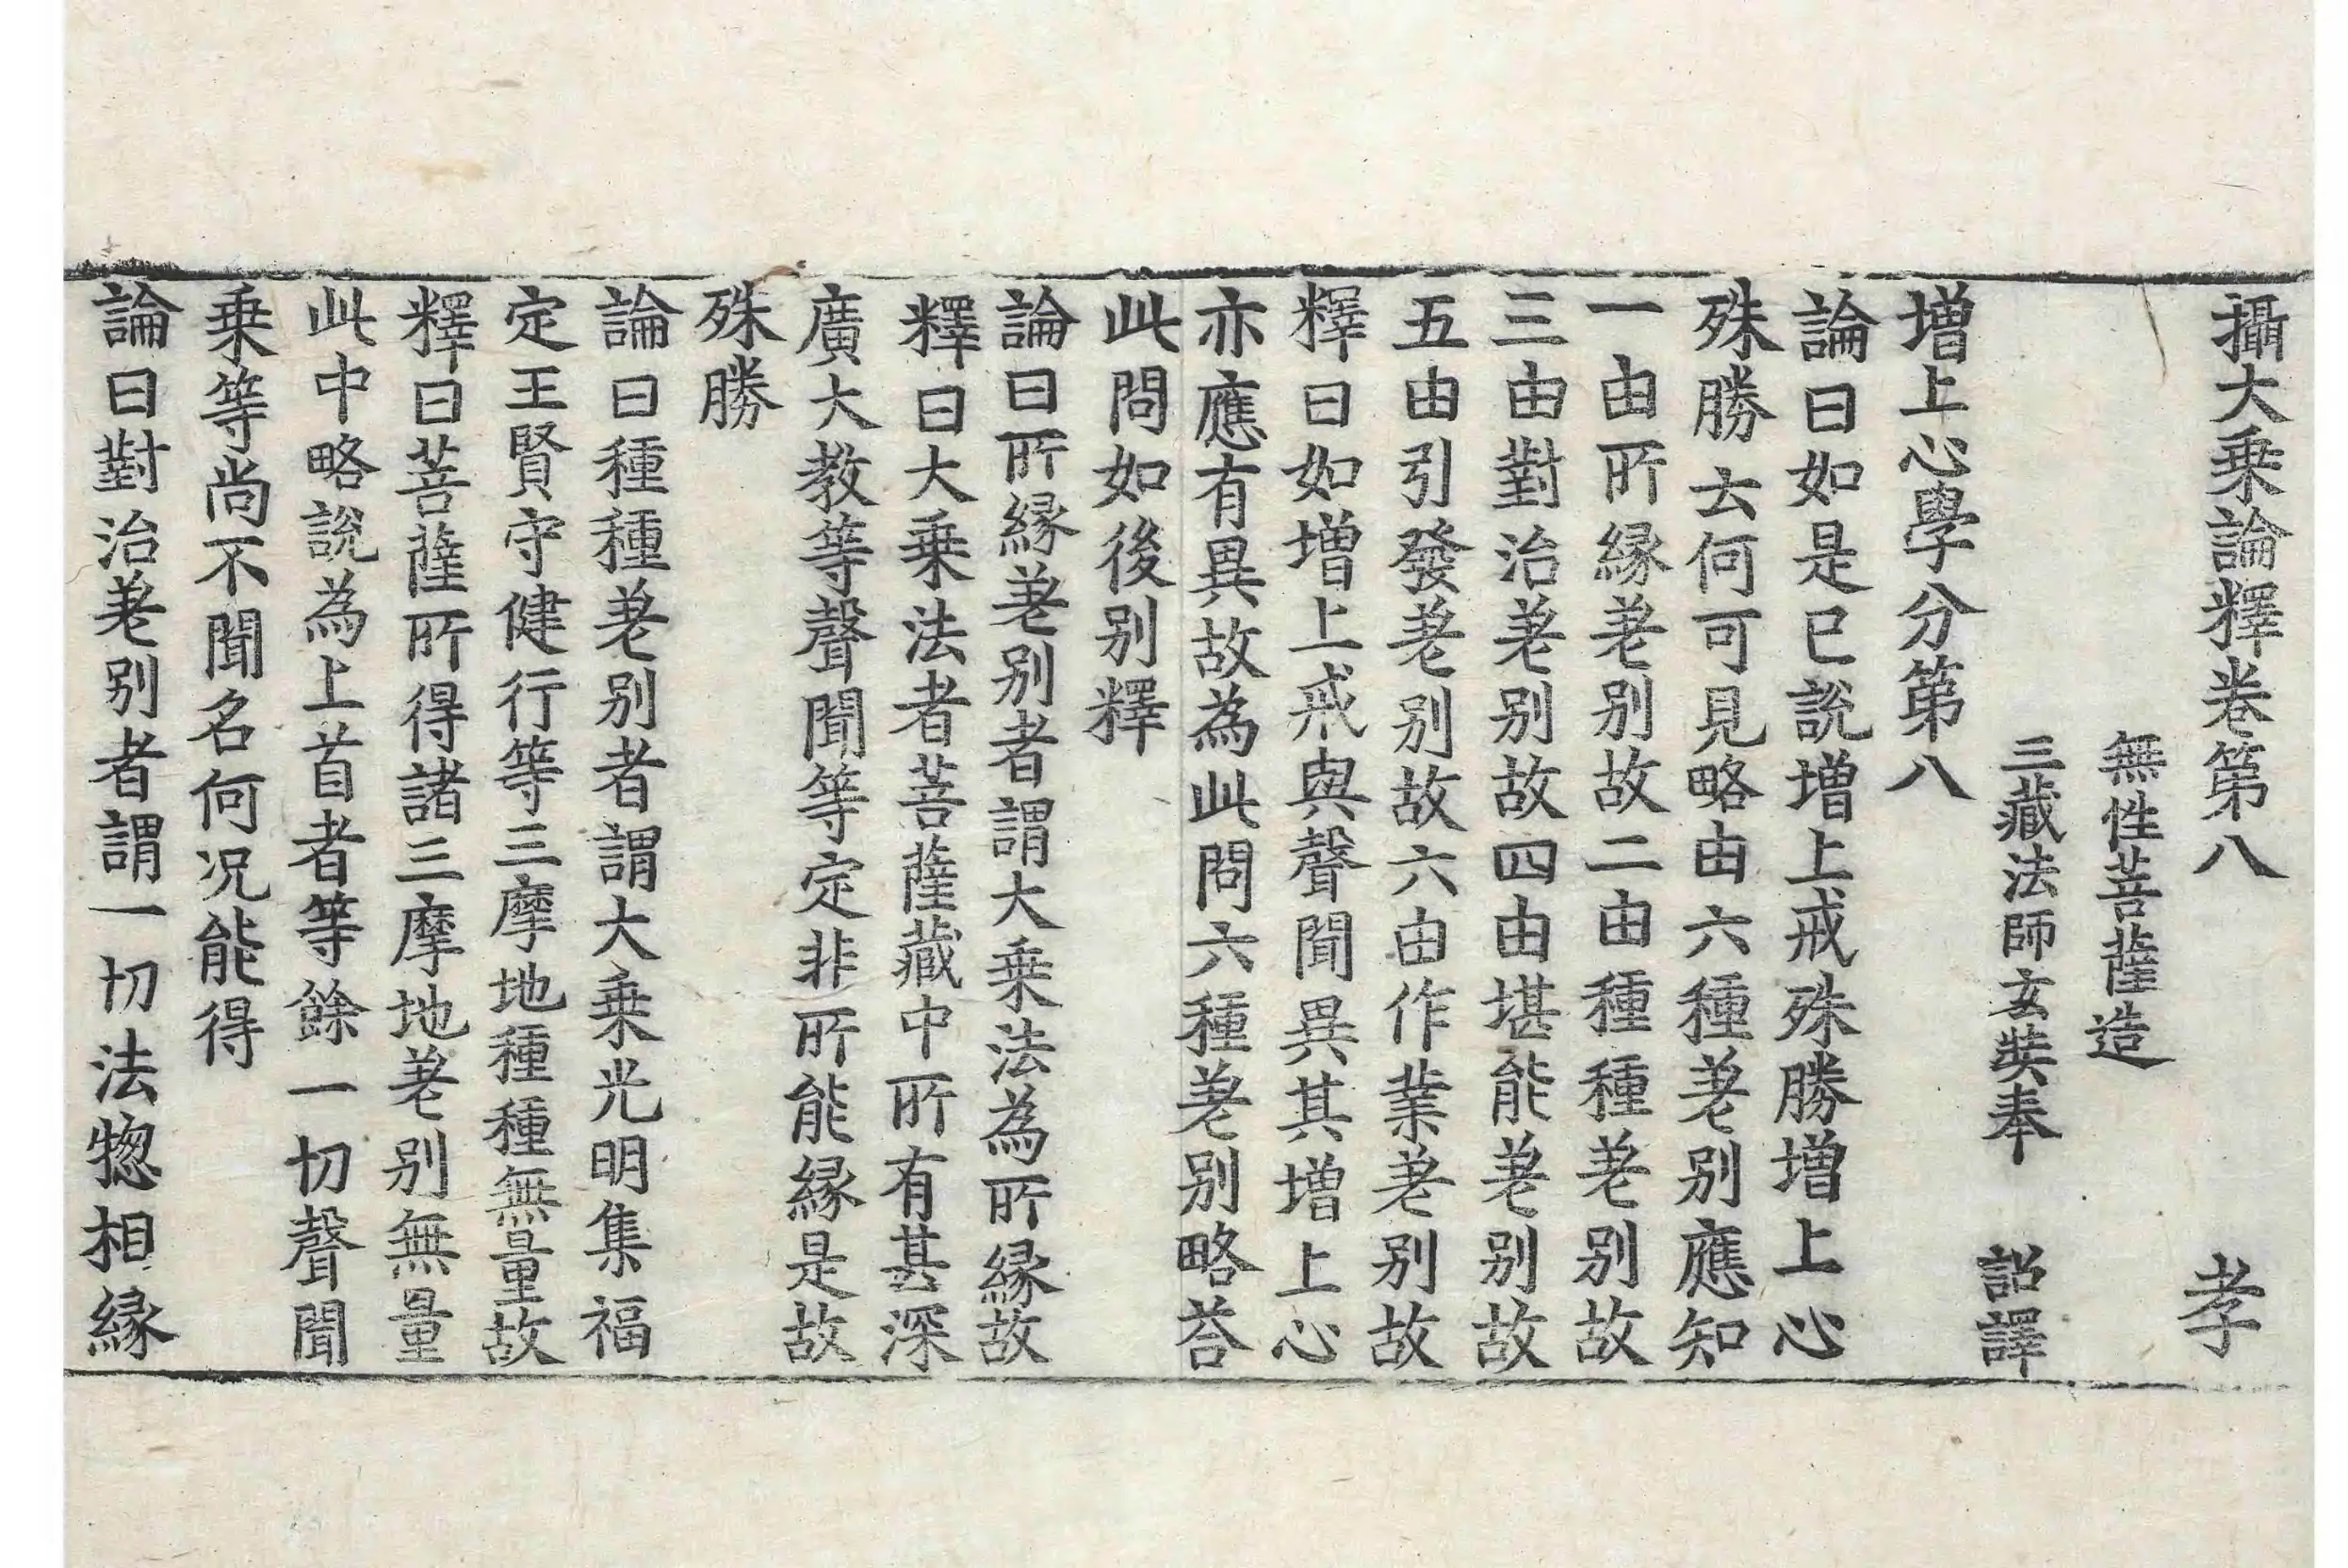 攝大乗論釋卷第八 孝
無性菩薩造
三藏法師玄奘奉 詔譯
增上心學分第八
論曰如是已說增上戒殊勝增上心
殊勝云何可見略由六種差别應知
一由所縁差别故二由種種差别故
三由對治差别故四由堪能差别故
五由引發差别故六由作業差别故
釋曰如增上戒與聲聞異其增上心
亦應有異故為此問六種差别略荅
此問如後别釋
論曰所縁差别者謂大乗法為所縁故
釋曰大乗法者菩薩藏中所有甚深
廣大教等聲聞等定非所能縁是故
殊勝
論曰種種差别者謂大乗光明集福
定王賢守健行等三摩地種種無量故
釋曰菩薩所得諸三摩地差别無量
此中略說為上首者等餘一切聲聞
乗等尚不聞名何况能得
論曰對治差别者謂一切法惣相縁